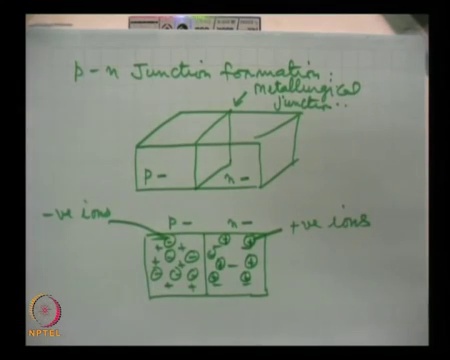 p-n Junction formation:
metallurgical
junction..
p- n-
-ve ions
p- n-
+ve ions
NPTEL